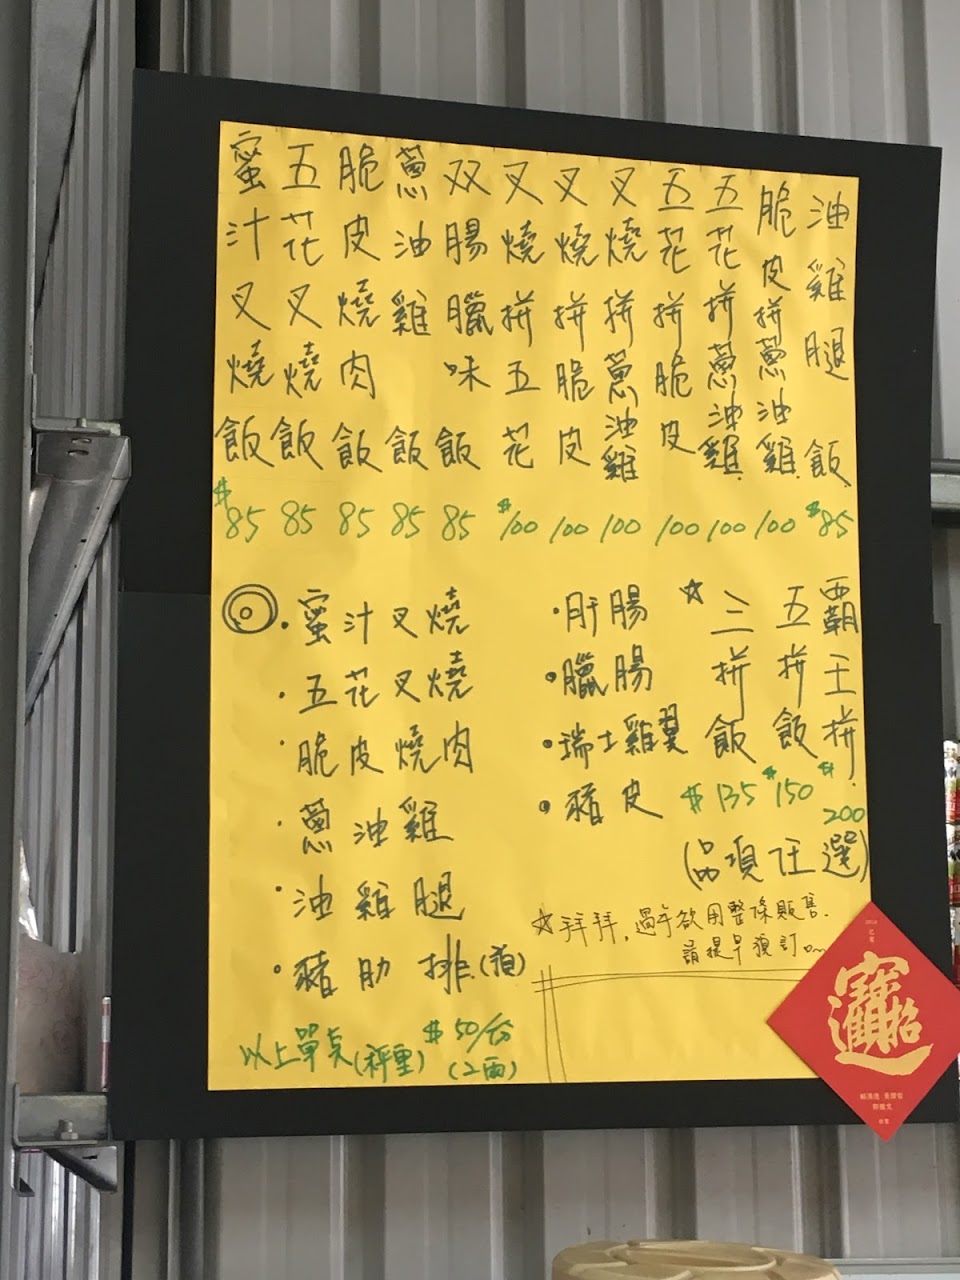 蜜汁叉燒飯 $85
五花叉燒飯 85
脆皮燒肉飯 85
蔥油雞飯 85
双腸臘味飯 85
叉燒拼五花 $100
叉燒拼脆皮 100
叉燒拼蔥油雞 100
五花拼脆皮 100
五花拼蔥油雞. 100
脆皮拼蔥油雞. 100
油雞腿飯. $85
◎
·蜜汁叉燒
·五花叉燒
·脆皮燒肉
·蔥油雞
·油雞腿
·豬肋排(預)
以上單点(秤重) $50/份
(2兩)
·肝腸
·臘腸
·瑞士雞翼
·豬皮
☆三拼飯 $135
五拼飯 $150
霸王拼. $200
(品項任選)
☆拜拜,過年欲用整條販售.
請提早預訂
招財進寶